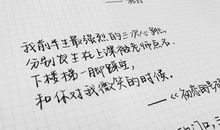 我前半生最强烈的三次心跳,
分别发生在上课被老师点名
下楼梯一脚踩空,
和你对我微笑的时候。
——《